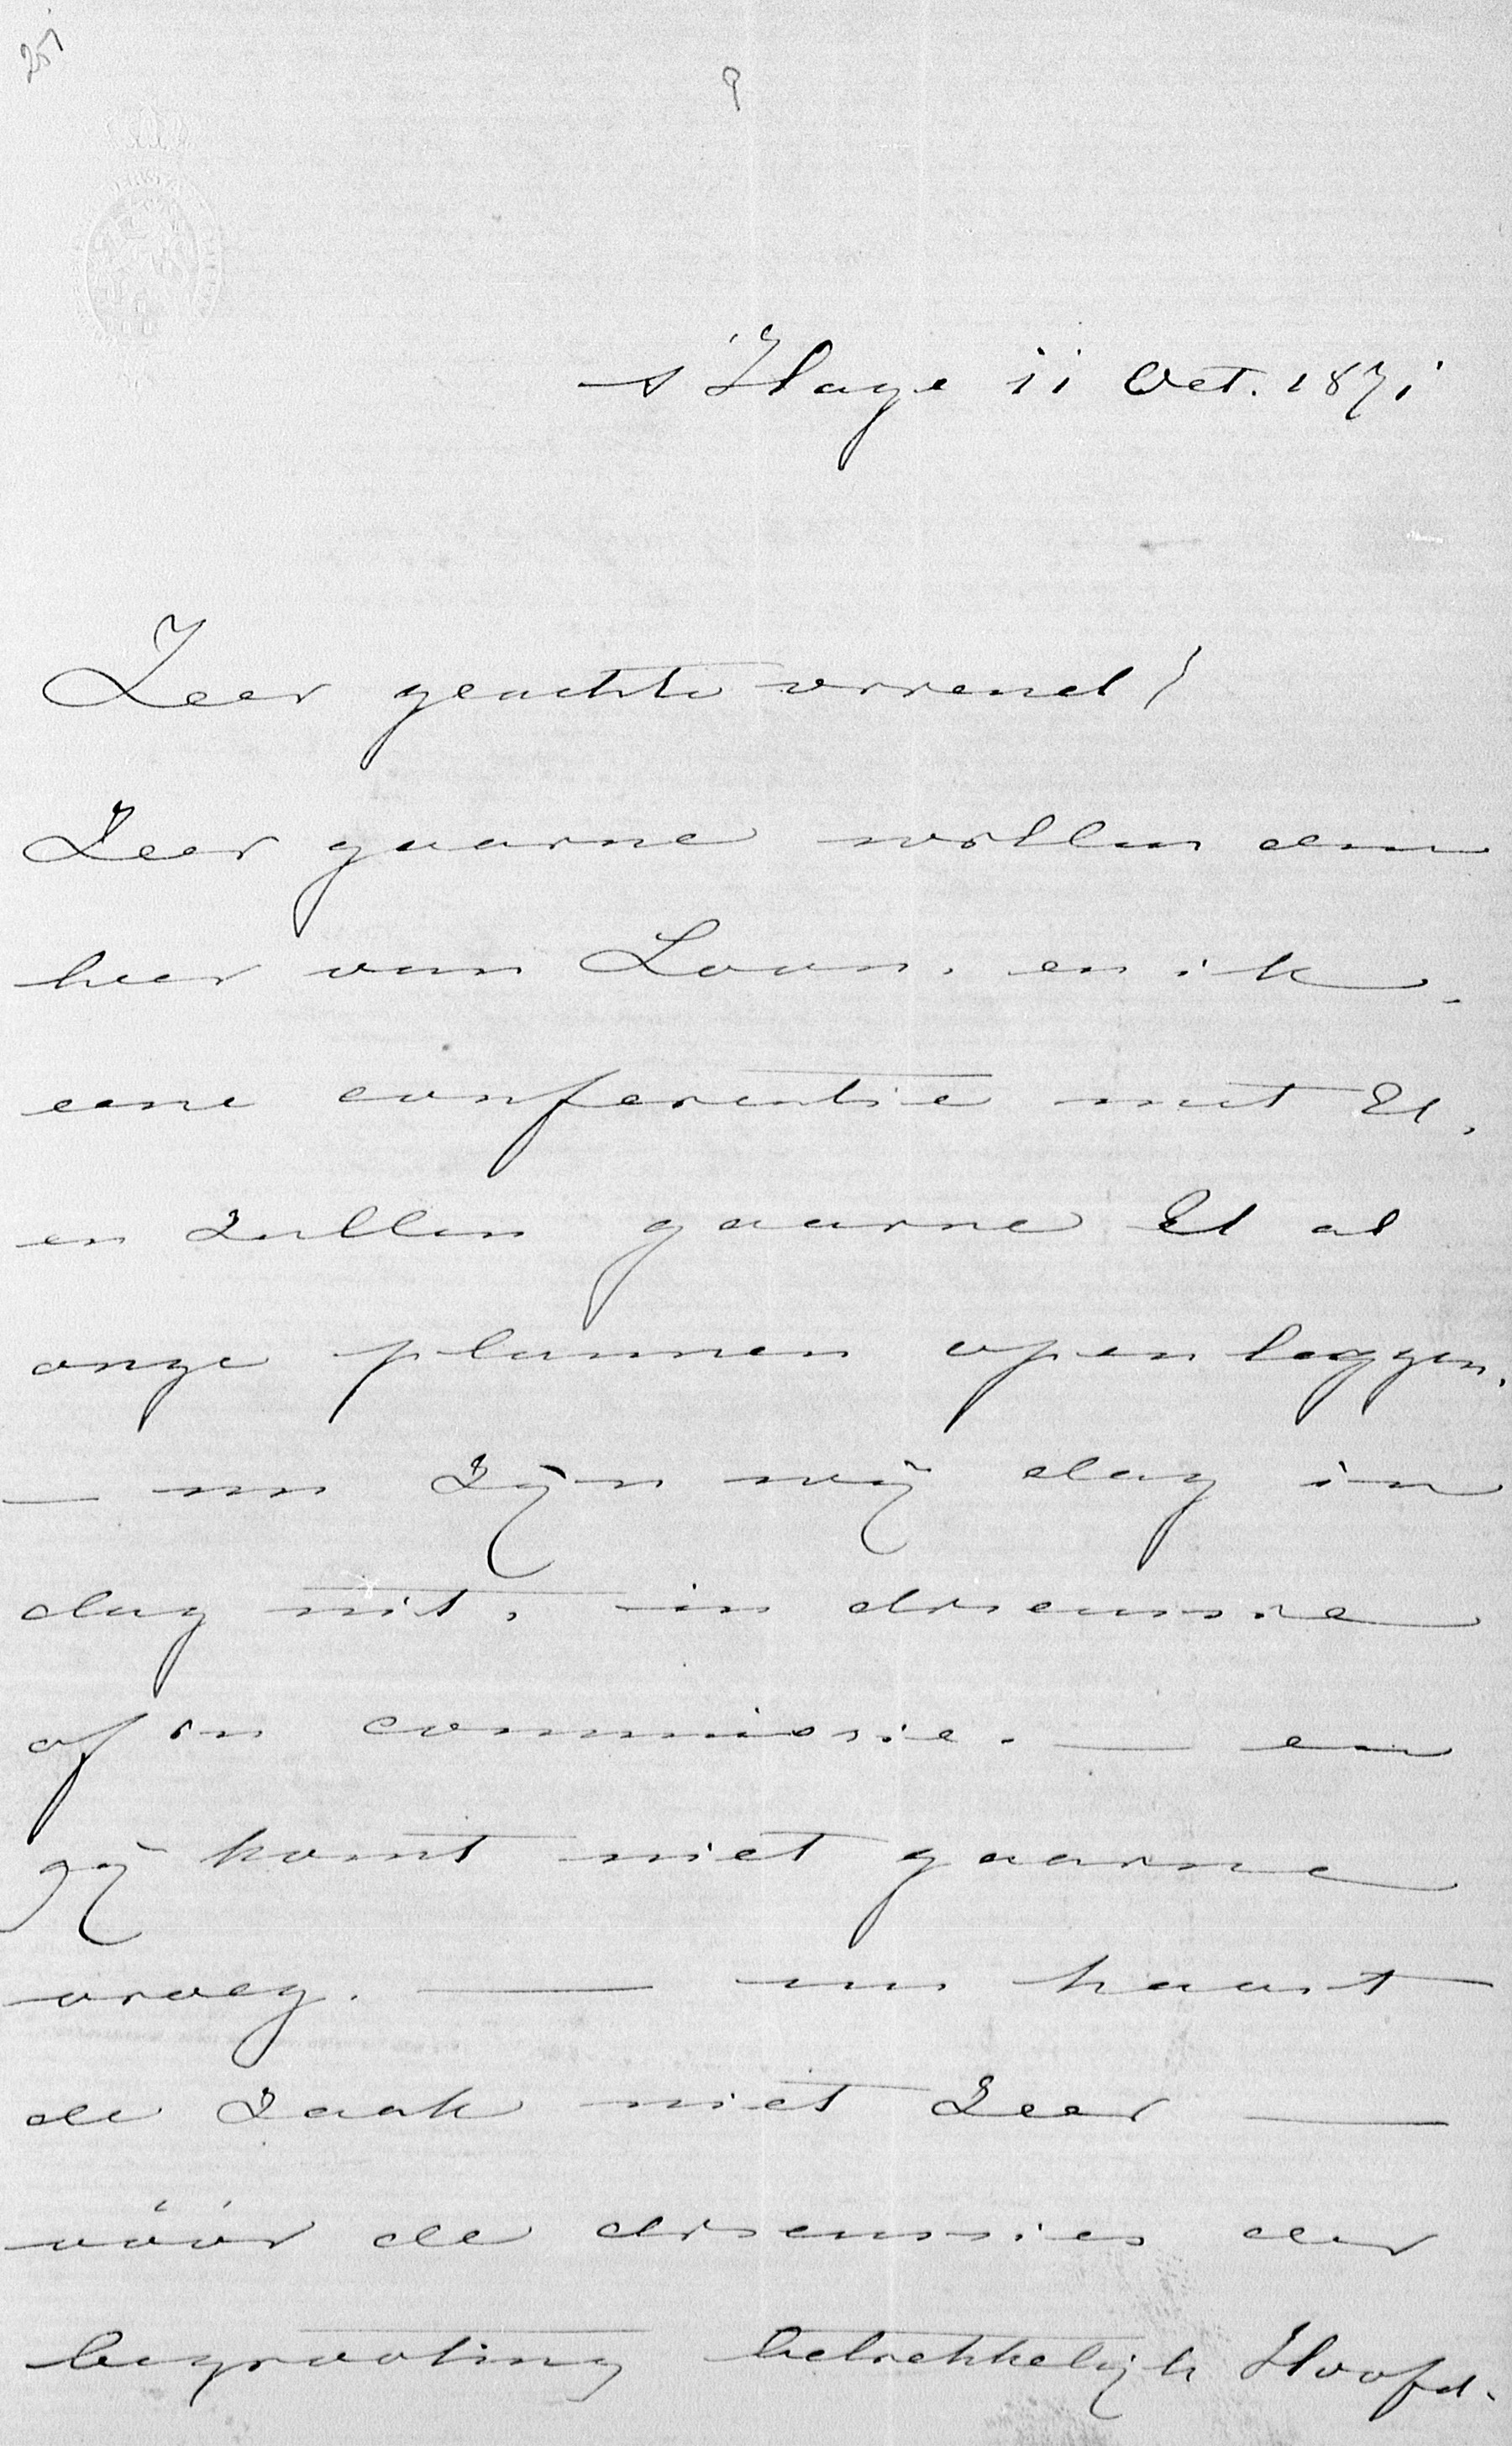 251
9
s'Hage 11 Oct. 1871
Zeer geachte vriend!
Zeer gaarne willen den
heer van Loon. en ik.
eene conferentie met U,
en zullen gaarne U al
onze plannen open leggen.
— nu zijn wij dag in
dag uit, in discussie
of in commissie. — en
gij komt niet gaarne
vroeg. — nu haast
de zaak niet zeer —
vóór de discussies der
begrooting betrekkelijk Hoofd-